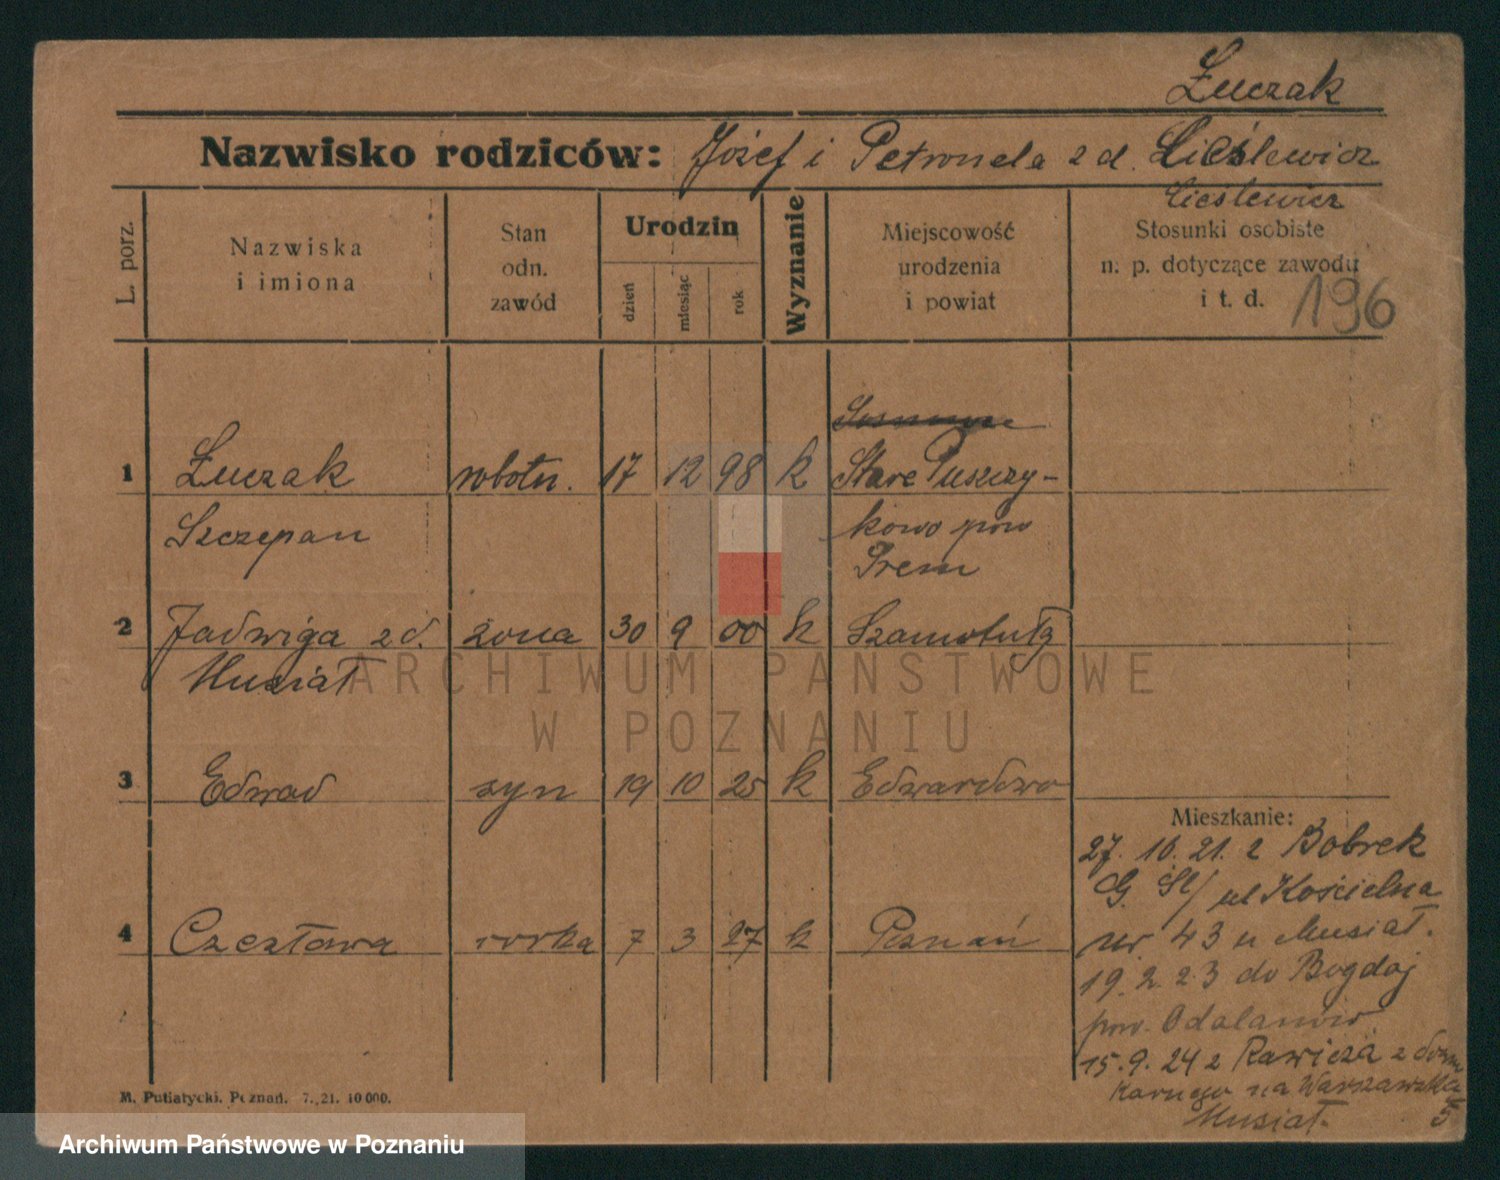 Łuczak
Nazwisko rodziców: Józef i Petronela z d. Cieślewicz
Cieślewicz
L. porz.
Nazwiska
i imiona
Stan
odn.
zawód
Urodzin
dzień
miesiąc
rok
Wyznanie
Miejscowość
urodzenia
i powiat
Stosunki osobiste
n. p. dotyczące zawodu
i t. d.
196
1 Łuczak robotn. 17 12 98 k Stare Puszczy-
Szczepan kowo pow
Śrem
2 Jadwiga z d. żona 30 9 00 k Szamotuły
Musiał
3 Edward syn 19 10 25 k Edwardowo
4 Czesława córka 7 3 27 k Poznań
Mieszkanie:
27. 10. 21. z Bobrek
G. Śl/ ul Kościelna
nr 43 u Musiał.
19. 2. 23 do Bogdaj
pow. Odolanów
15. 9. 24 z Rawicza z dom
Karnego na Warszawska
Musiał. 5
M. Putiatycki. Poznań. 7. 21. 10 000.
ARCHIWUM PAŃSTWOWE
W POZNANIU
Archiwum Państwowe w Poznaniu